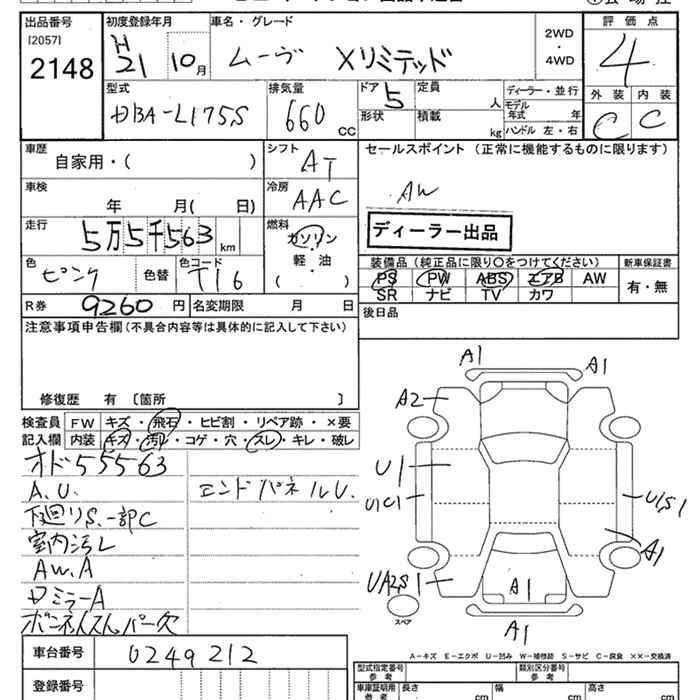 出品番号
[2057]
2148
初度登録年月
H 21 10 月
車名・グレード
ムーヴ Xリミテッド
2WD
・
4WD
評価点
4
外装 内装
C C
型式
DBA-L175S
排気量
660 CC
ドア
5
定員
人
形状
積載
kg
ディーラー・並行
モデル年式 年
ハンドル 左・右
車歴
自家用・( )
シフト
AT
セールスポイント (正常に機能するものに限ります)
AW
ディーラー出品
車検
年 月( 日)
冷房
AAC
走行
5万5千563 km
燃料
ガソリン
軽・油
( )
色
ピンク
色替
色コード
T16
装備品 (純正品に限り○をつけてください)
PS PW ABS エアB AW
SR ナビ TV カワ
新車保証書
有・無
R券 9260 円
名変期限 月 日
後日品
注意事項申告欄 (不具合内容等は具体的に記入して下さい)
修復歴 有 〔箇所 〕
検査員記入欄
FW キズ・飛石・ヒビ割・リペア跡・×要
内装 キズ・汚レ・コゲ・穴・スレ・キレ・破レ
オド55563
A.U.
エンドパネルU.
下廻りS.一部C
室内汚レ
AW.A
Dミラ-A
A1
A1
A2
U1
U1C1
U1S1
A1
UA2S1
A1
A1
スペア
A-キズ E-エクボ U-凹み W-補修跡 S-サビ C-腐食 XX-交換済
車台番号 0249212
登録番号
型式指定番号
参考
類別区分番号
参考
車庫証明用
参考
長さ cm
幅 cm
高さ cm